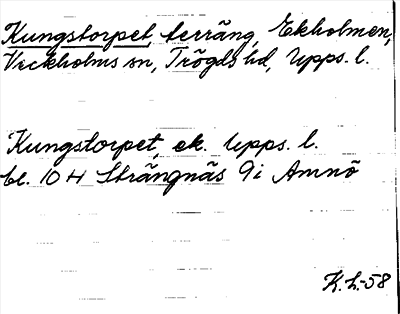 Kungstorpet, terräng, Ekholmen,
Veckholms sn, Trögds hd, Upps. l.
Kungstorpet, ek. Upps. l.
bl. 10 H Strängnäs 9i Arnnö
K.L.-58